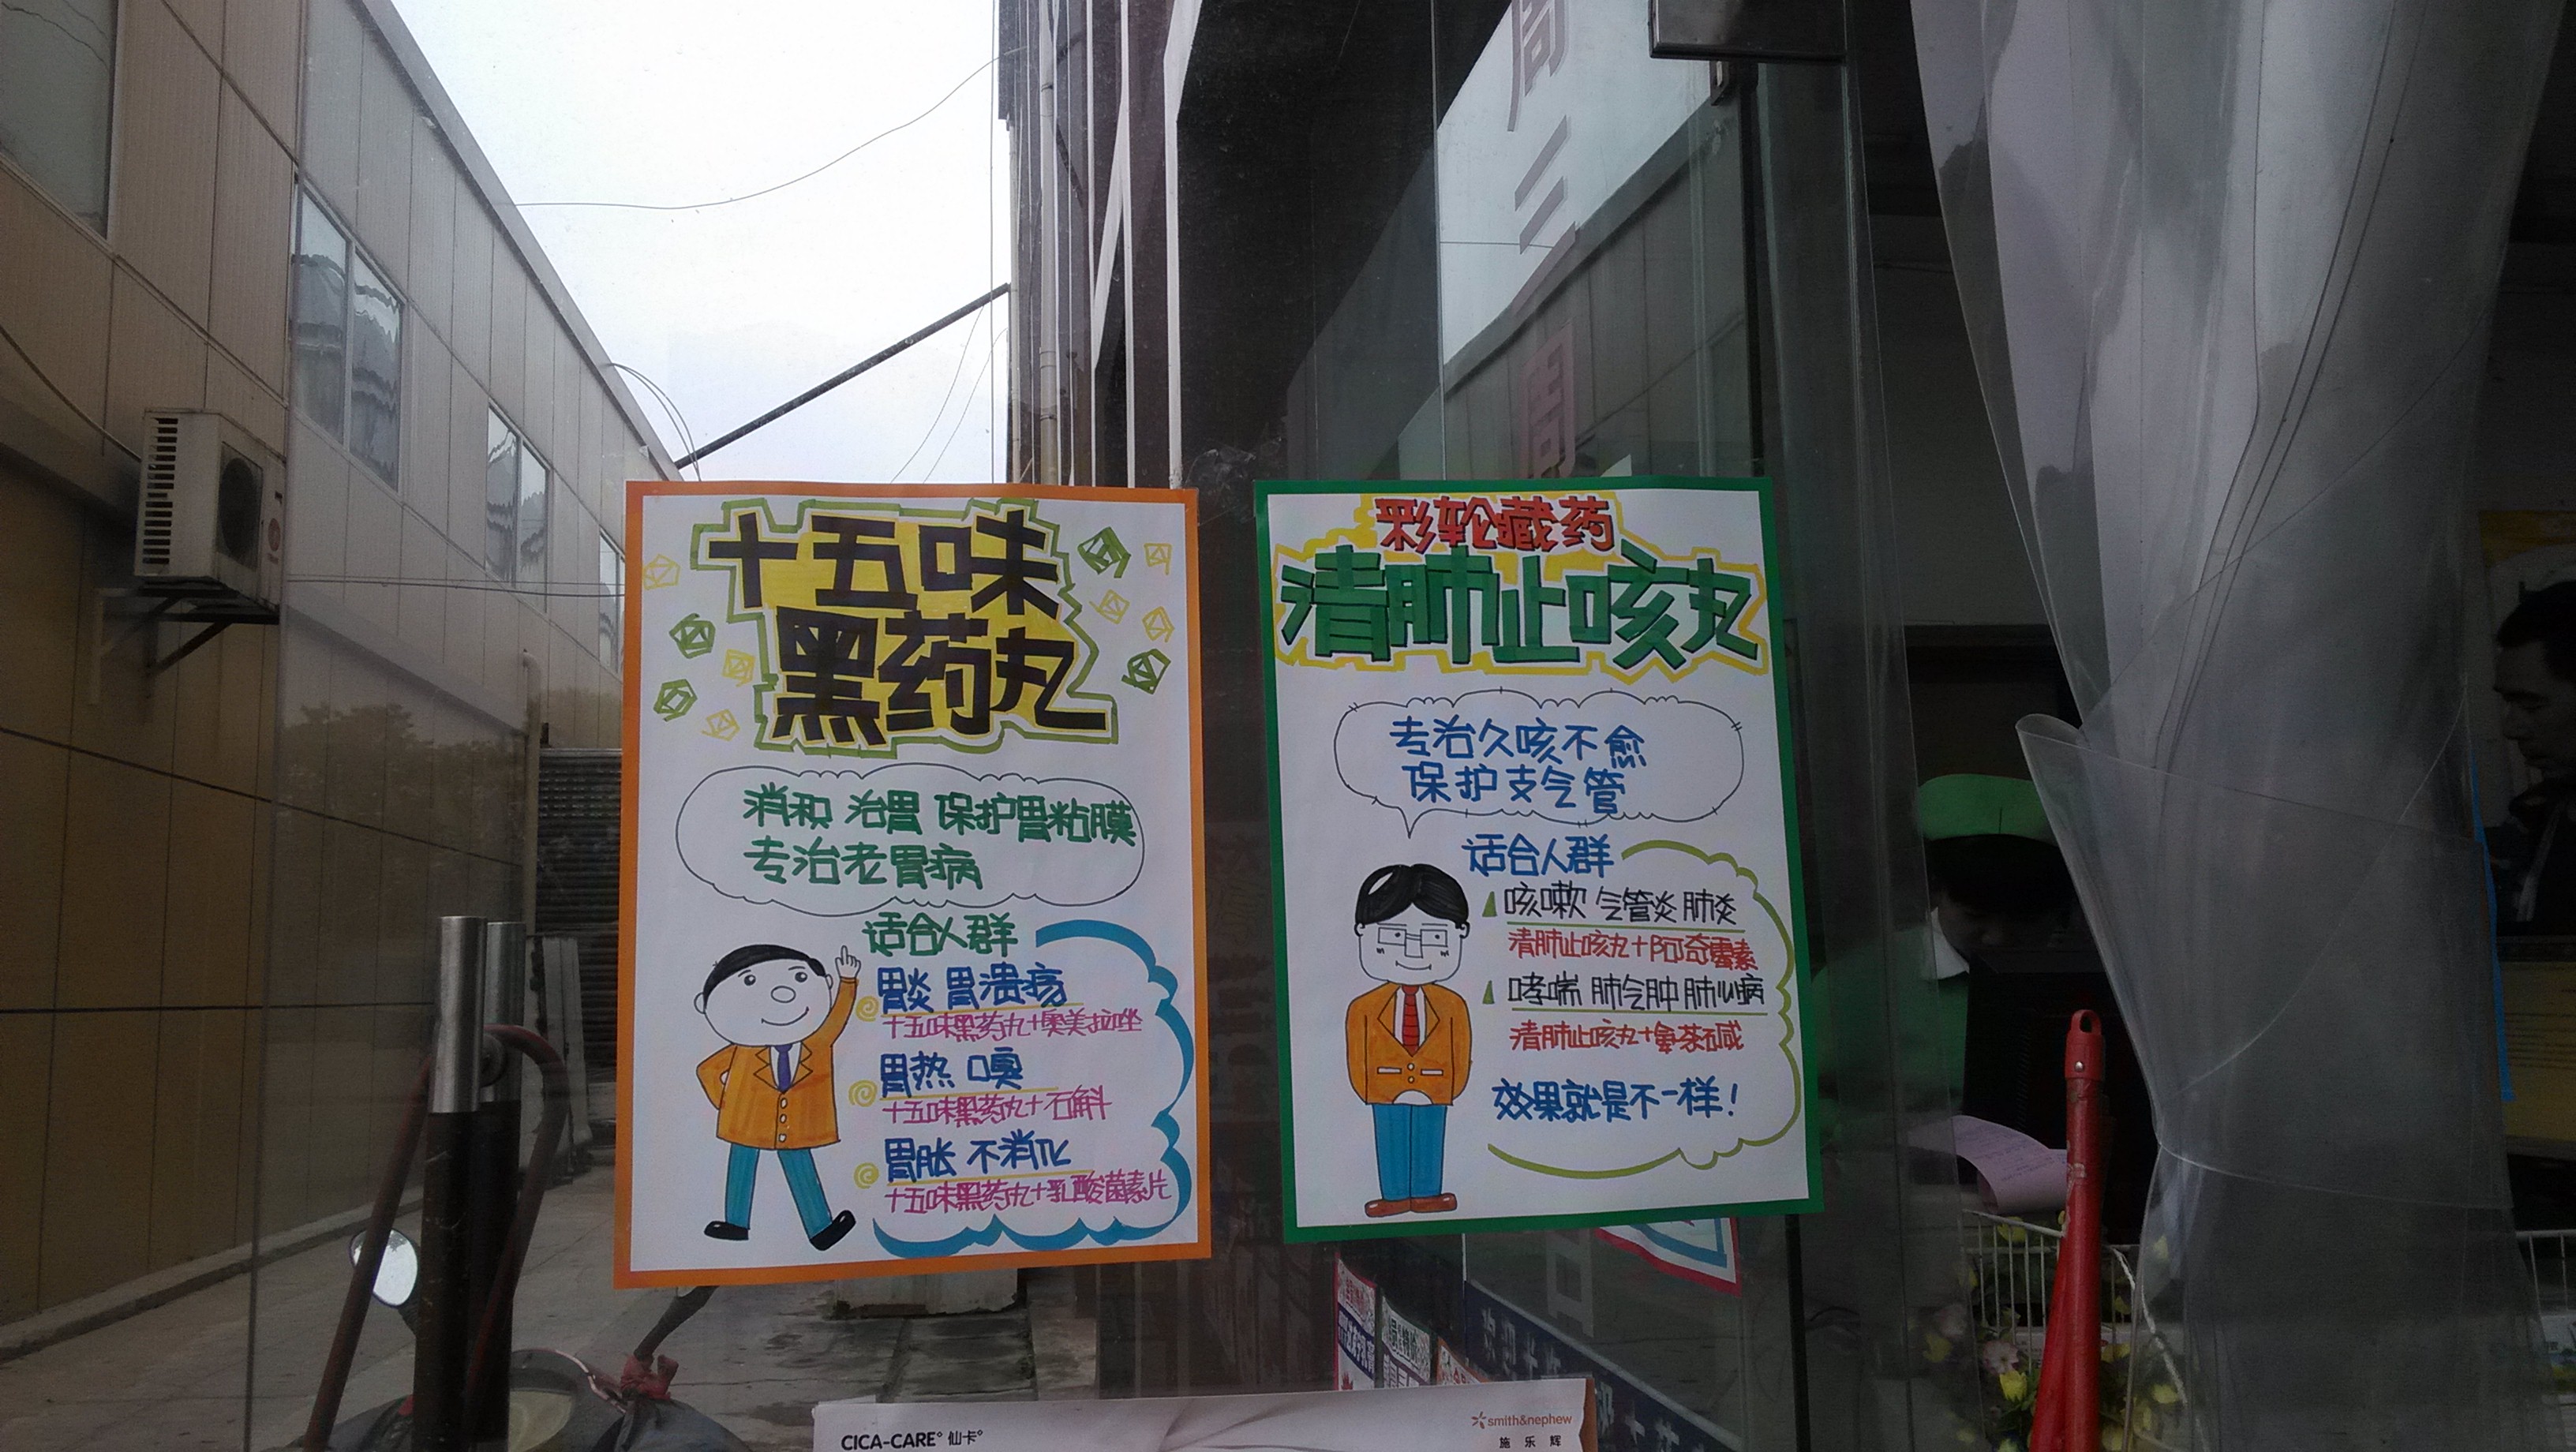 周
三
周
十五味
黑药丸
消积 治胃 保护胃粘膜
专治老胃病
适合人群
胃炎 胃溃疡
十五味黑药丸+奥美拉唑
胃热 嗅
十五味黑药丸+石斛
胃胀 不消化
十五味黑药丸+乳酸菌素片
彩轮藏药
清肺止咳丸
专治久咳不愈
保护支气管
适合人群
咳嗽 气管炎 肺炎
清肺止咳丸+阿奇霉素
哮喘 肺气肿 肺心病
清肺止咳丸+氨茶碱
效果就是不一样！
smith&nephew
施乐辉
CICA-CARE° 仙卡°